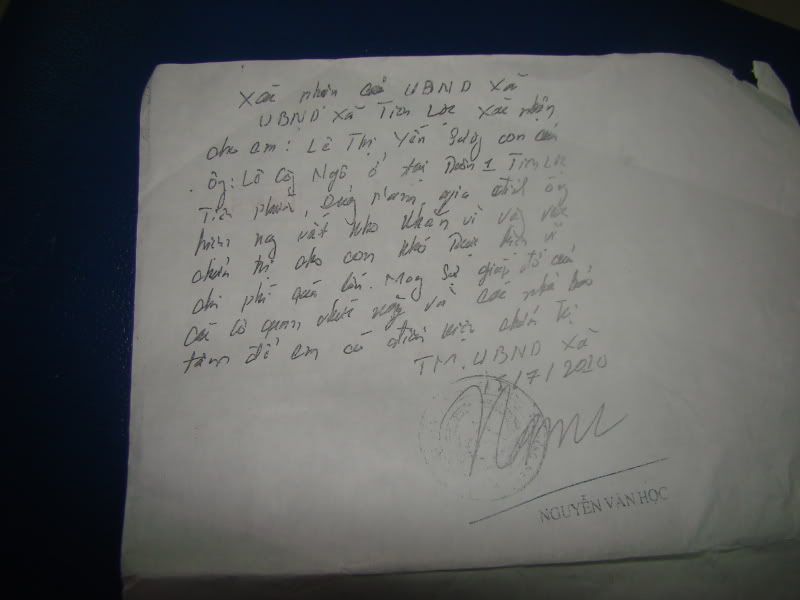 Xác nhận của UBND Xã
UBND Xã Tiên Lộc xác nhận
cho em: Lê Thị Yến Sương con của
ông: Lê Công Ngô ở tại Thôn 1 Tiên Lộc
Tiên Phước, Quảng Nam, gia đình ông
hiện nay rất khó khăn vì vậy việc
chữa trị cho con khó thực hiện vì
chi phí quá lớn. Mong sự giúp đỡ của
các cơ quan chức năng và các nhà hảo
tâm để em có điều kiện chữa trị
TM. UBND Xã
/7/2010
NGUYỄN VĂN HỌC